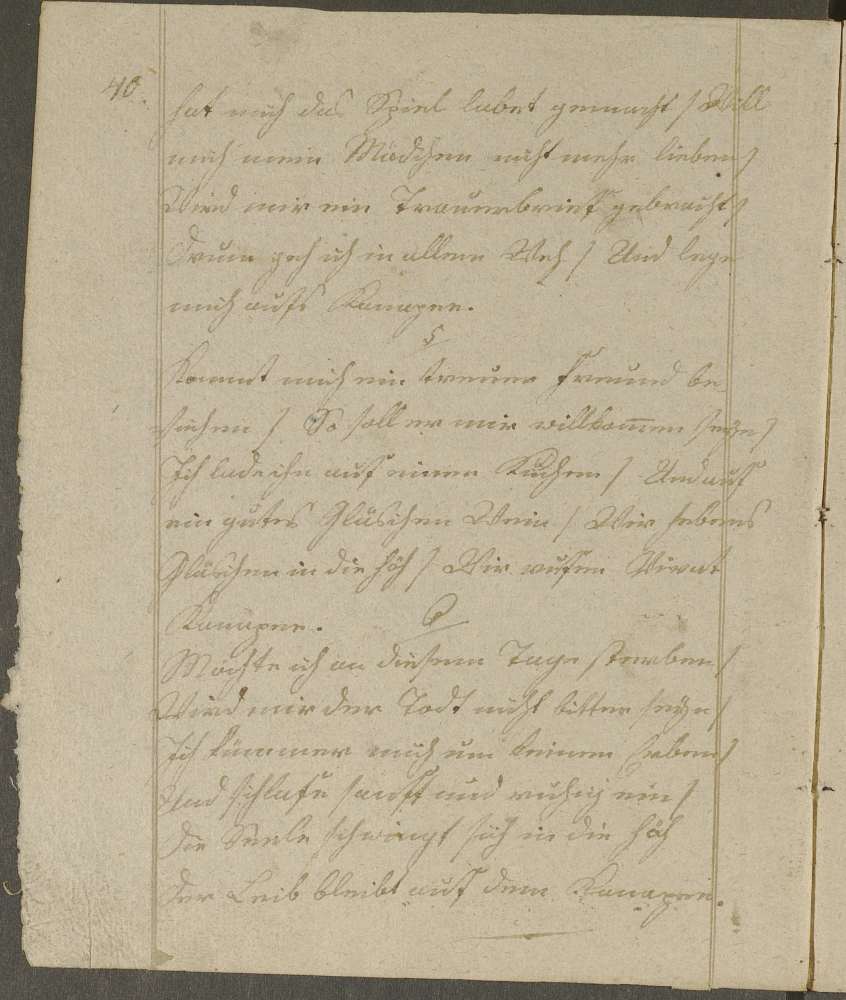 40.
hat mich das Spiel labet gemacht / Will
mich mein Mädchen nicht mehr lieben /
Wird mir ein Trauerbrief gebracht /
Drum geh ich in allem Weh / Und lege
mich aufs Kanapee.
5
Kommt mich ein treuer Freund be-
suchen / So soll er mir willkom̄en seyn /
Ich lade ihn auf einen Kuchen / Und auf
ein gutes Gläschen Wein / Wir hebens
Gläschen in die Höh / Wir rufen Vivat
Kanapee.
6
Möchte ich an diesem Tage sterben /
Wird mir der Todt nicht bitter seyn /
Ich kümmer mich um keinen Erben /
Und schlafe sanft und ruhig ein /
Die Seele schwingt sich in die Höh
Der Leib bleibt auf dem Kanapee.